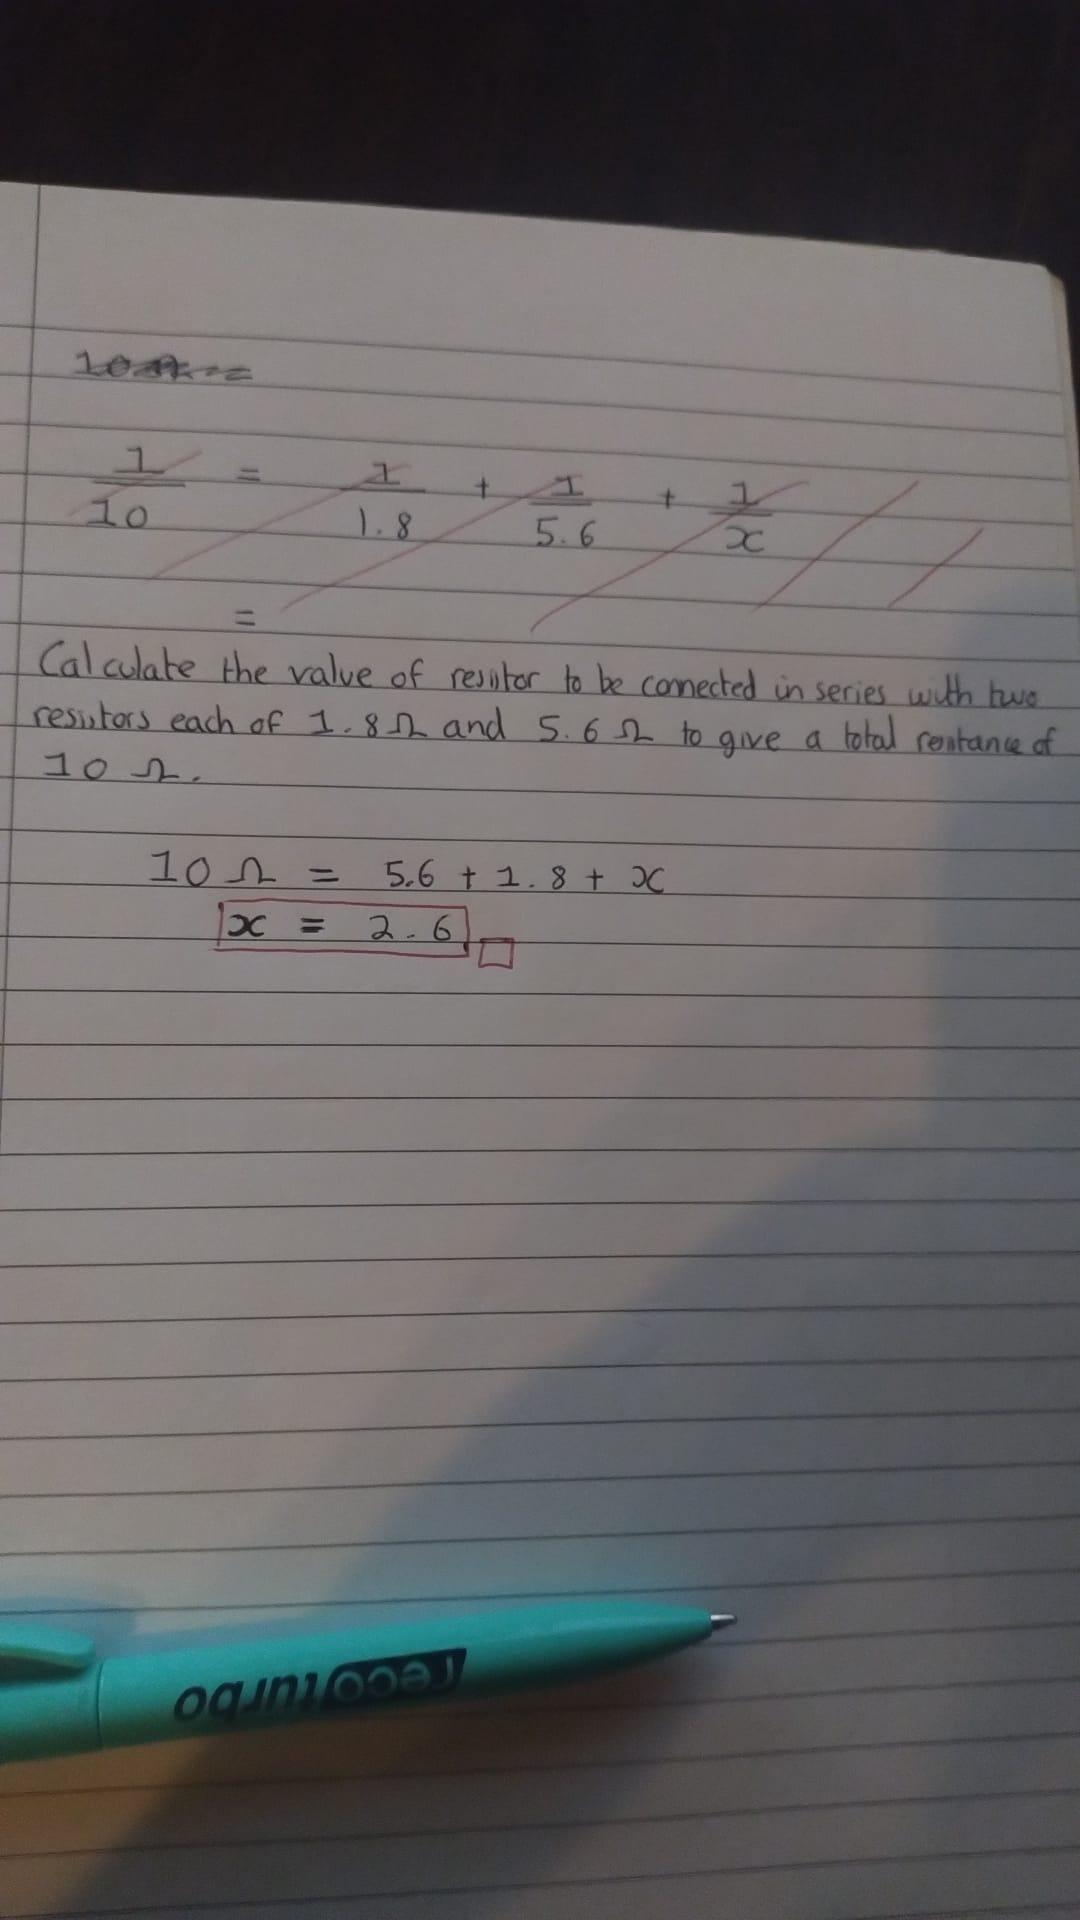 1/10 = 1/1.8 + 1/5.6 + 1/x
=
Calculate the value of resistor to be connected in series with two
resistors each of 1.8 Ω and 5.6 Ω to give a total resistance of
10 Ω.
10 Ω = 5.6 + 1.8 + x
x = 2.6
reco turbo